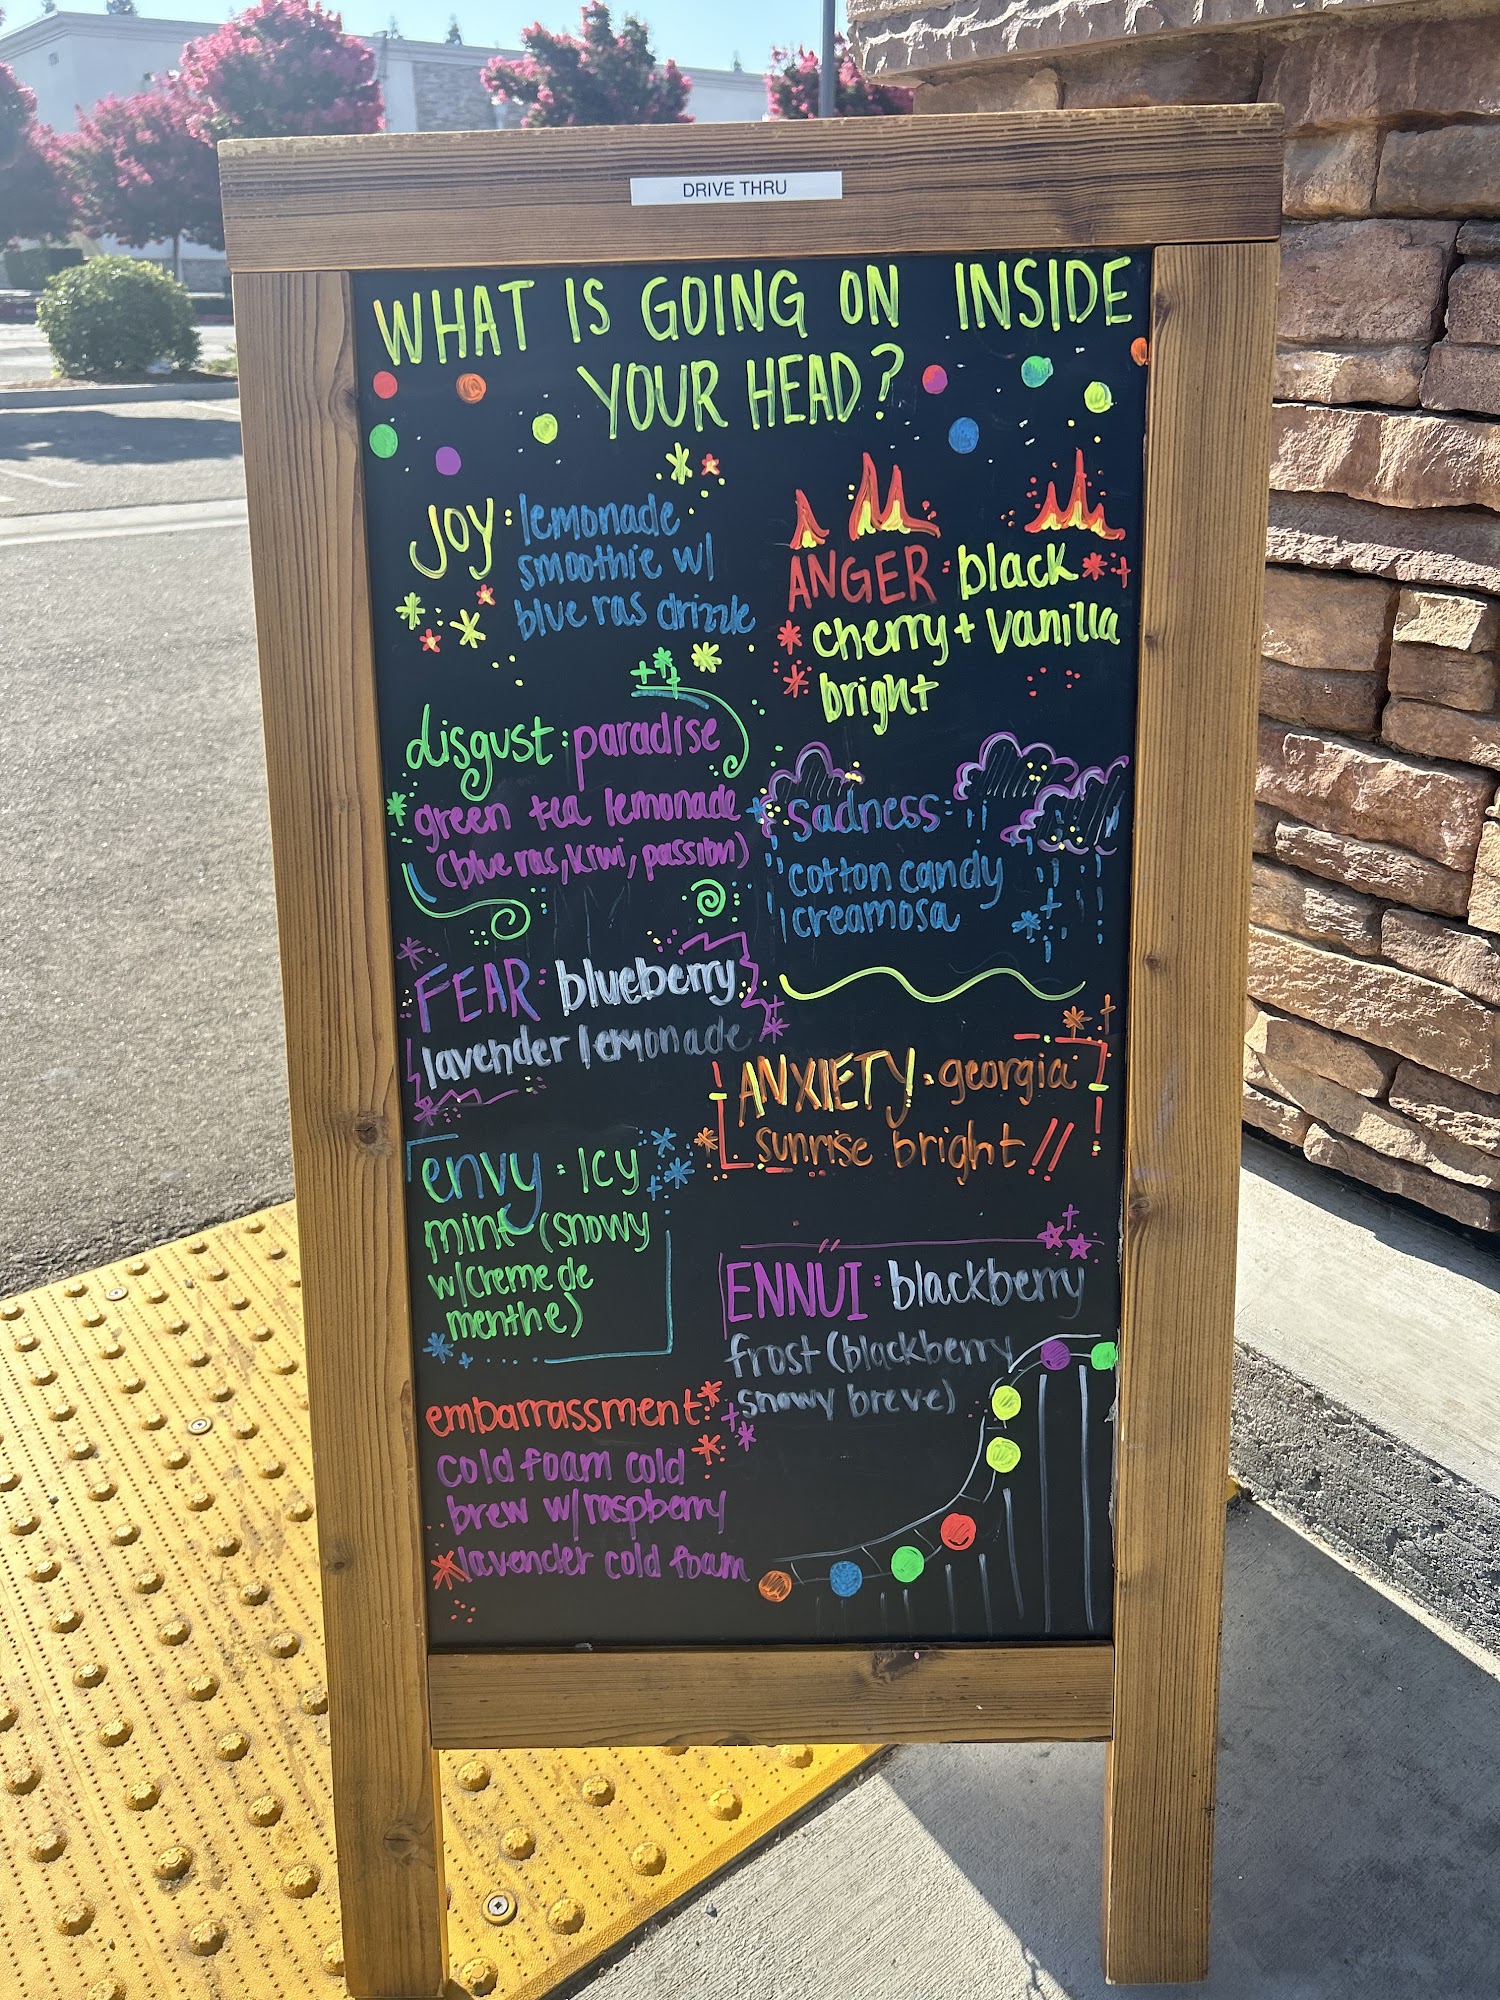 DRIVE THRU
WHAT IS GOING ON INSIDE
YOUR HEAD?
JOY: lemonade
smoothie w/
blue ras drizzle
disgust: paradise
green tea lemonade
(blue ras, kiwi, passion)
FEAR: blueberry
lavender lemonade
envy: Icy
mint (snowy
w/creme de
menthe)
embarrassment:
cold foam cold
brew w/raspberry
lavender cold foam
ANGER: black
cherry + vanilla
bright
sadness:
cotton candy
creamosa
ANXIETY: georgia
sunrise bright //
ENNUI: blackberry
frost (blackberry
snowy breve)